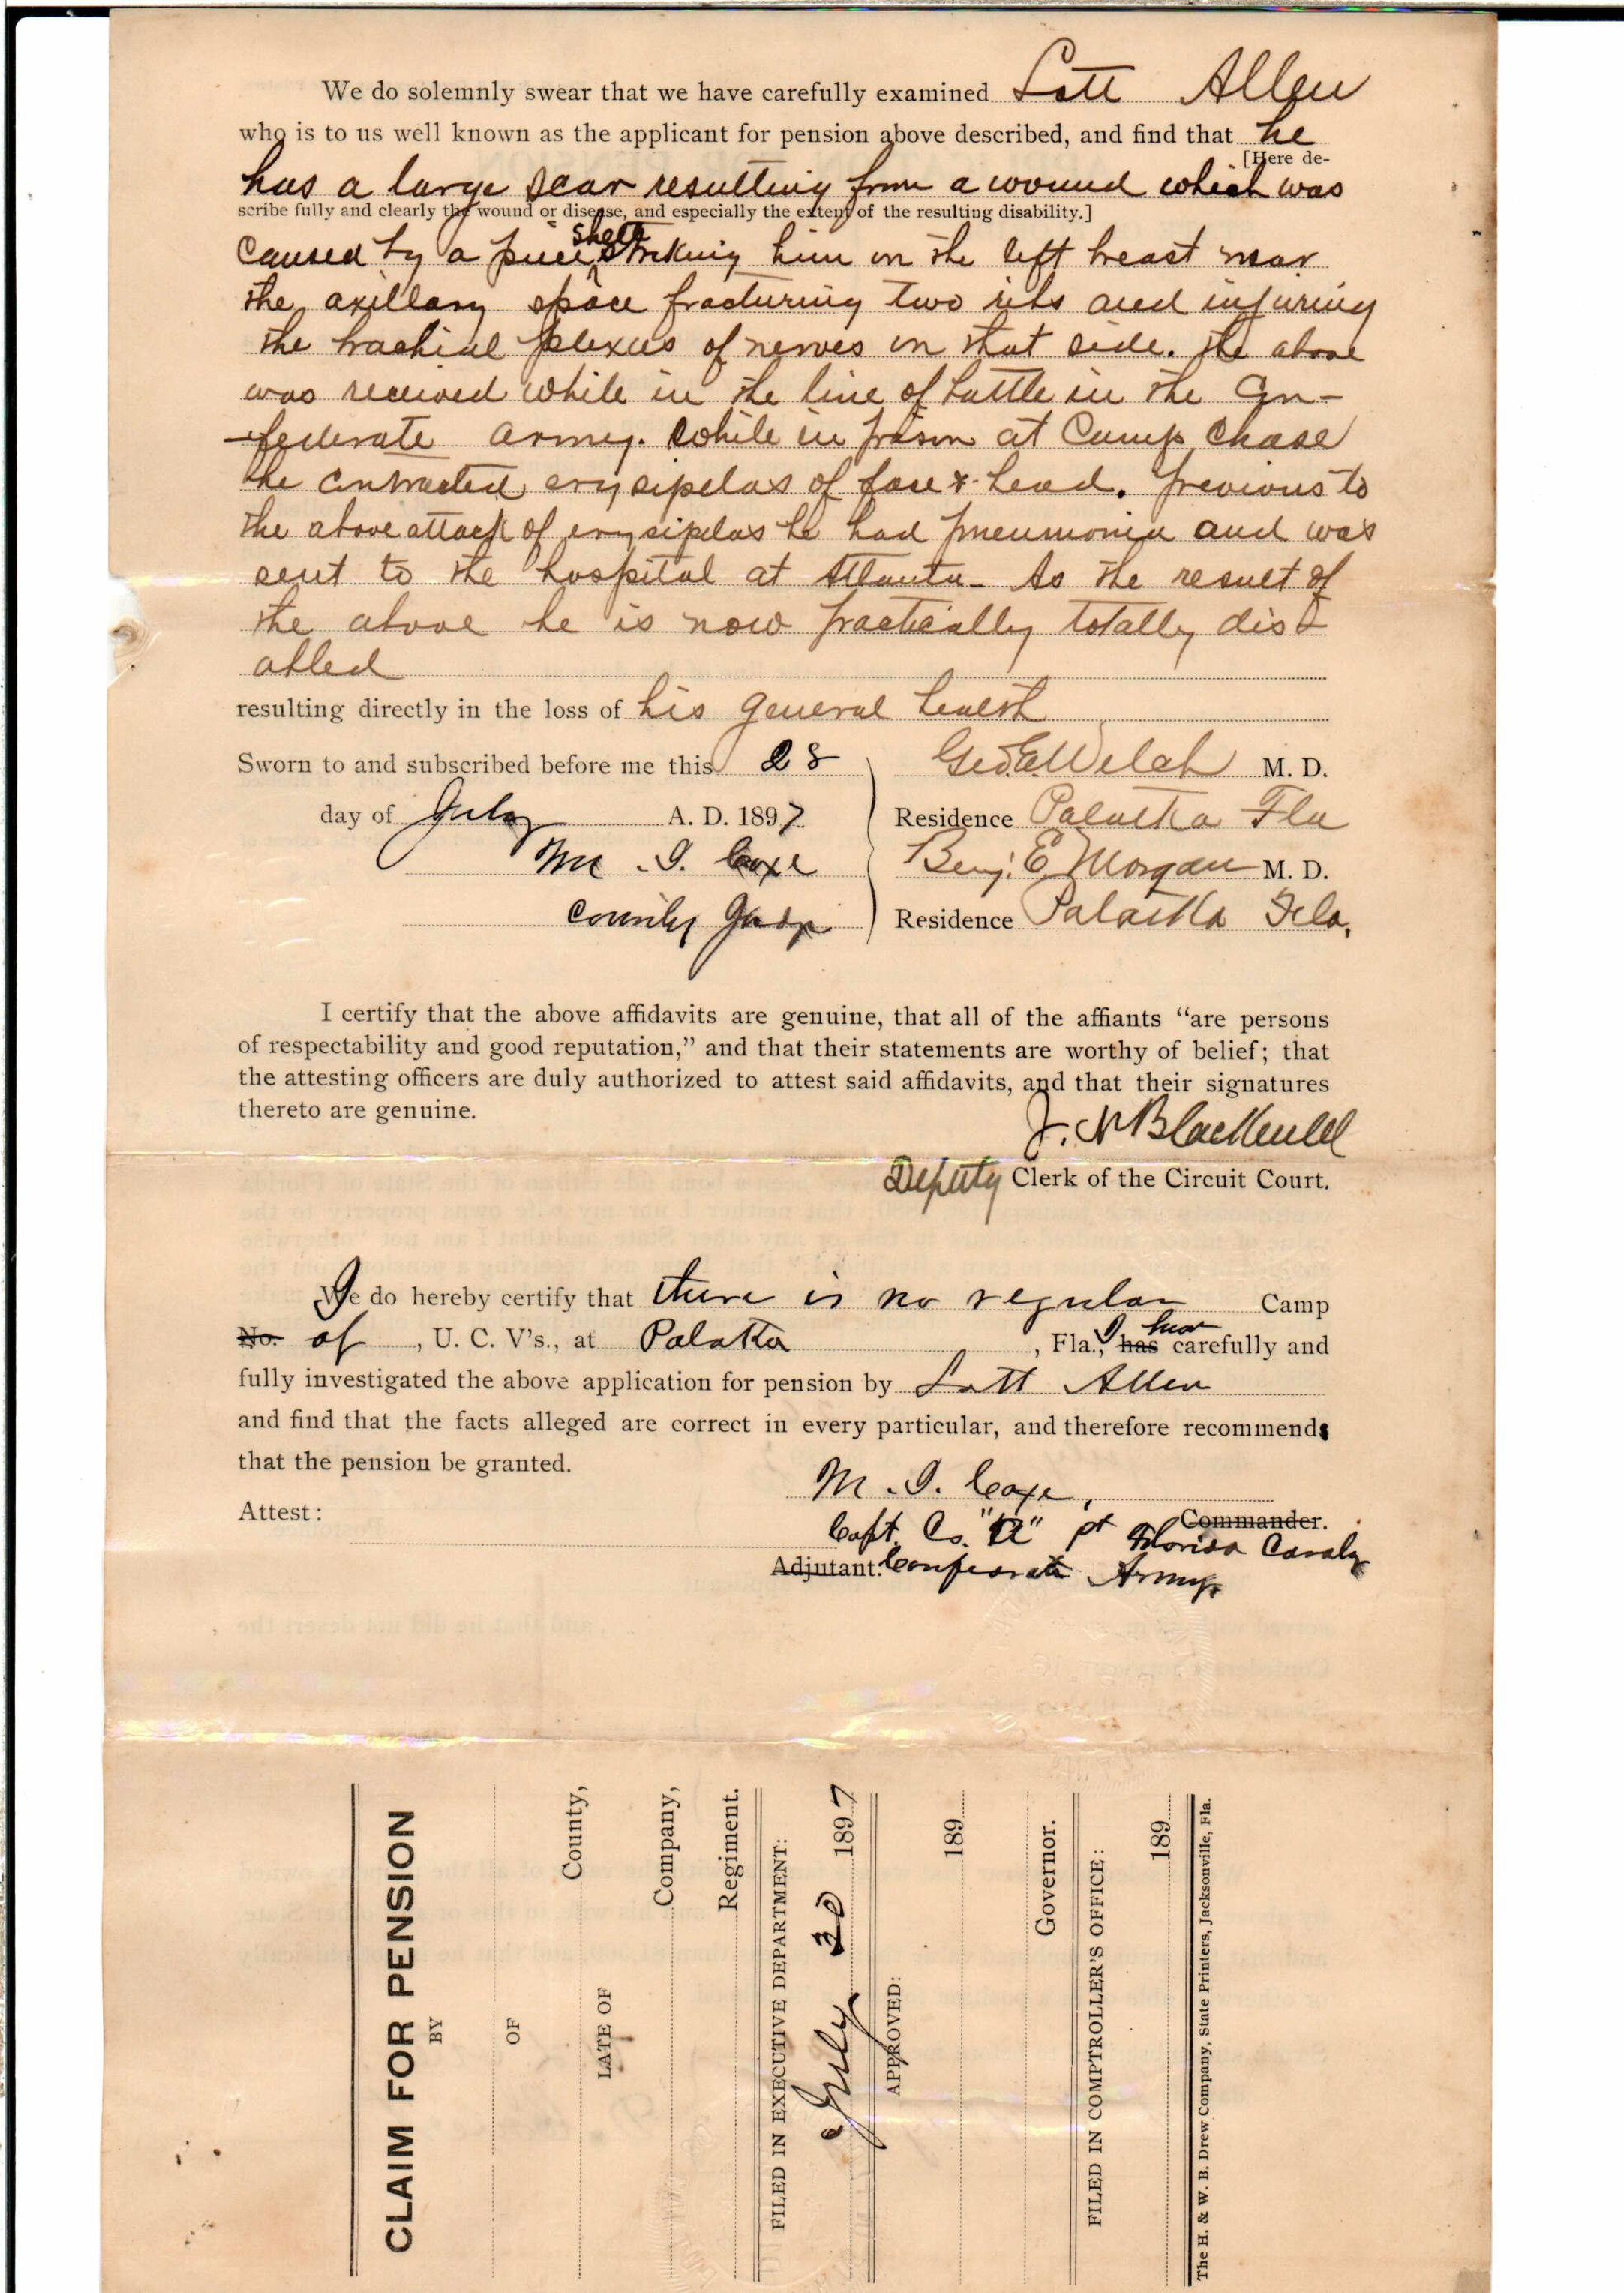 We do solemnly swear that we have carefully examined Lott Allen
who is to us well known as the applicant for pension above described, and find that he
[Here de-
has a large scar resulting from a wound which was
scribe fully and clearly the wound or disease, and especially the extent of the resulting disability.]
caused by a piece shell striking him on the left breast near
the axillary space fracturing two ribs and injuring
the brachial plexus of nerves on that side. The above
was received while in the line of battle in the Con-
-federate army. While in prison at Camp Chase
he contracted erysipelas of face & head. Previous to
the above attack of erysipelas he had pneumonia and was
sent to the hospital at Atlanta - As the result of
the above he is now practically totally dis-
abled
resulting directly in the loss of his general health
Sworn to and subscribed before me this 28
day of July A. D. 1897
M. I. Coxe
County Judge
Geo E Welch M. D.
Residence Palatka Fla
Benj. E Morgan M. D.
Residence Palatka Fla.
I certify that the above affidavits are genuine, that all of the affiants “are persons
of respectability and good reputation,” and that their statements are worthy of belief; that
the attesting officers are duly authorized to attest said affidavits, and that their signatures
thereto are genuine.
J. N Blackwell
Deputy Clerk of the Circuit Court.
I We do hereby certify that there is no regular Camp
No. of , U. C. V's., at Palatka , Fla., I have has carefully and
fully investigated the above application for pension by Lott Allen
and find that the facts alleged are correct in every particular, and therefore recommends
that the pension be granted.
M. I. Coxe,
Attest: Commander.
Capt. Co. "" Florida Cavalry
Adjutant. Confederate Army
CLAIM FOR PENSION
BY
OF
County,
LATE OF
Company,
Regiment.
FILED IN EXECUTIVE DEPARTMENT:
July 30 1897
APPROVED:
189
Governor.
FILED IN COMPTROLLER'S OFFICE:
189
The H. & W. B. Drew Company, State Printers, Jacksonville, Fla.